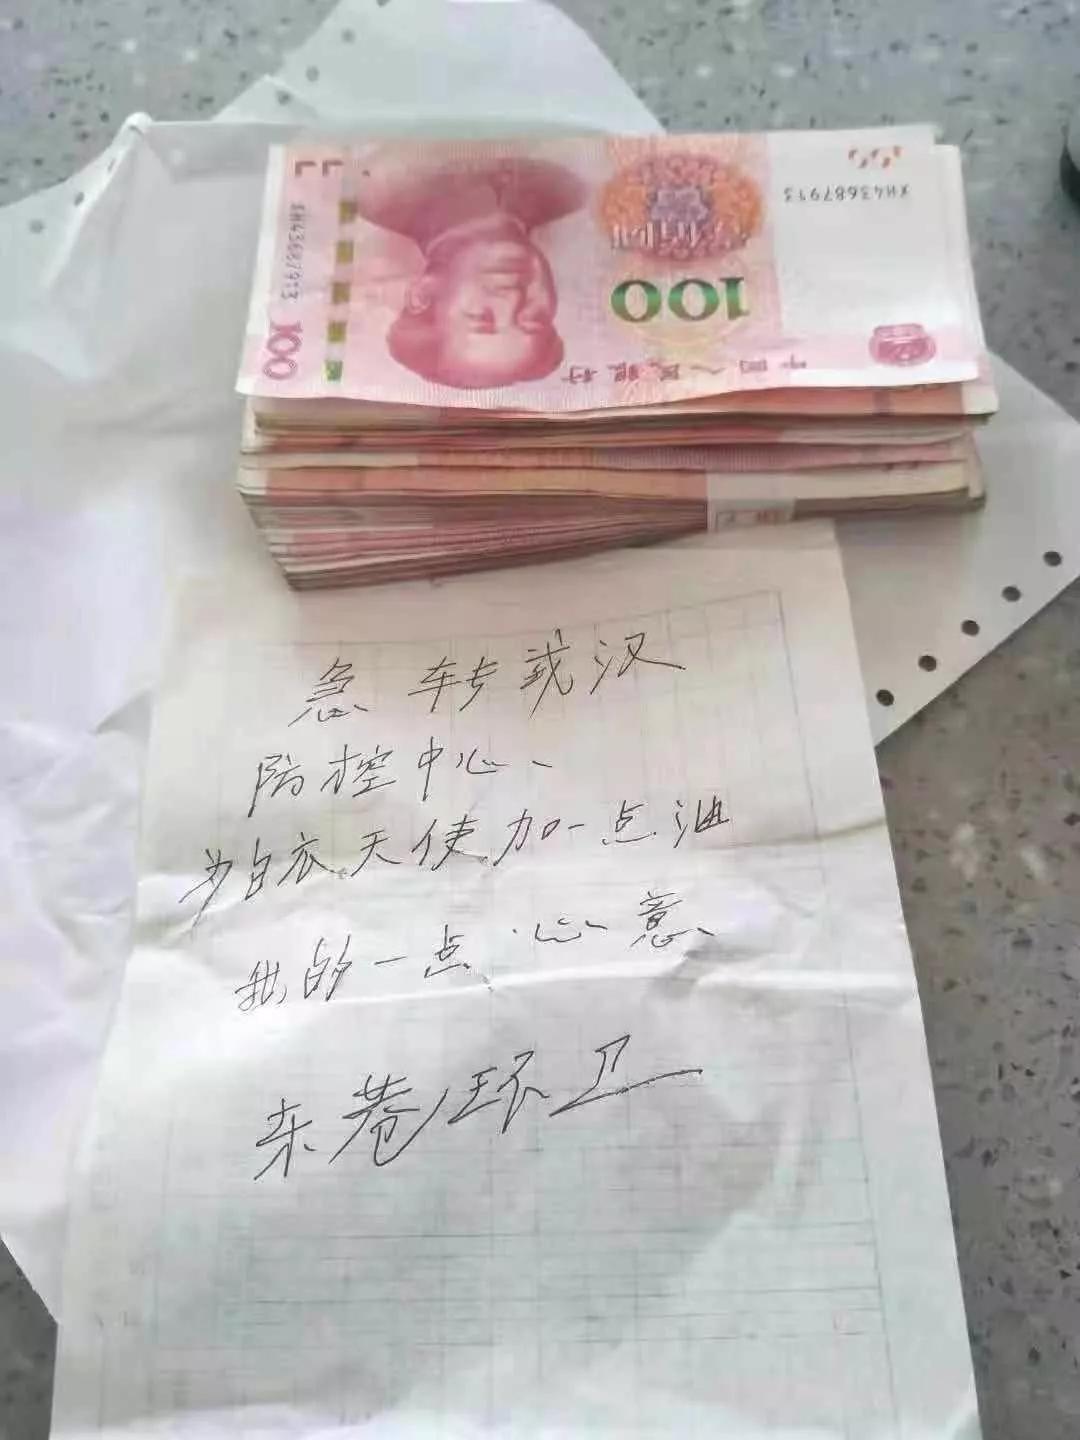 XH43687913
100
壹佰圆
中国人民银行
XH43687913
100
急 转武汉
防控中心、
为白衣天使加一点油
我的一点心意、
东巷环卫